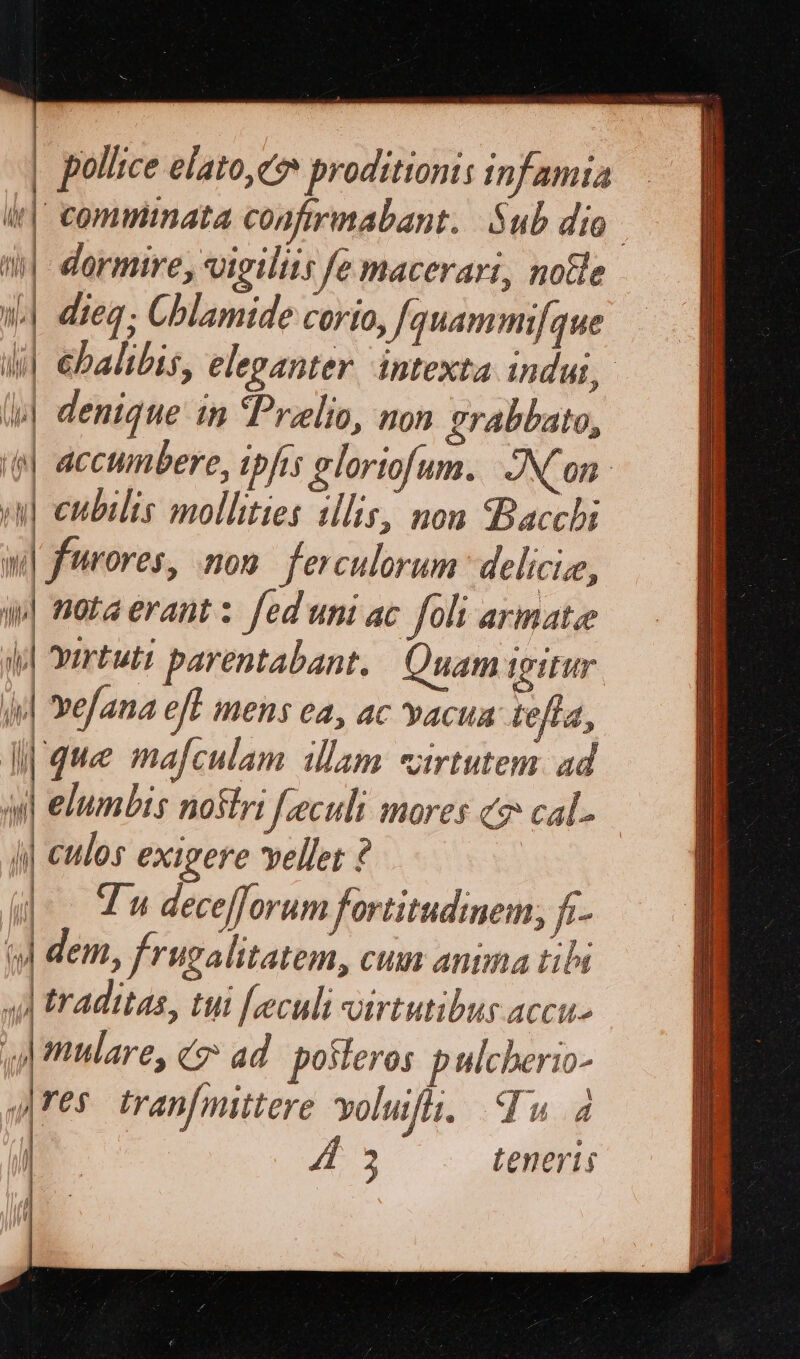 pollice elato, & proditionis infamia
comminata confirmabant. Sub dio
dormire, vigiliis ſe macerari, nocte
dieq; Chlamide corio, ſquammiſque
chalibis, eleganter intexta indui,
denique in Prælio, non grabbato,
accumbere, ipſis glorioſum. Non
cubilis mollities illis, non Bacchi
furores, non ferculorum deliciæ,
nota erant: ſed uni ac ſoli armatæ
virtuti parentabant. Quam igitur
veſana eſt mens ea, ac vacua teſta,
quæ maſculam illam virtutem ad
elumbis noſtri ſæculi mores & cal-
culos exigere vellet?
Tu deceſſorum fortitudinem, fi-
dem, frugalitatem, cum anima tibi
traditas, tui ſæculi virtutibus accu-
mulare, & ad poſteros pulcherio-
res tranſmittere voluiſti. Tu à
A 3 teneris